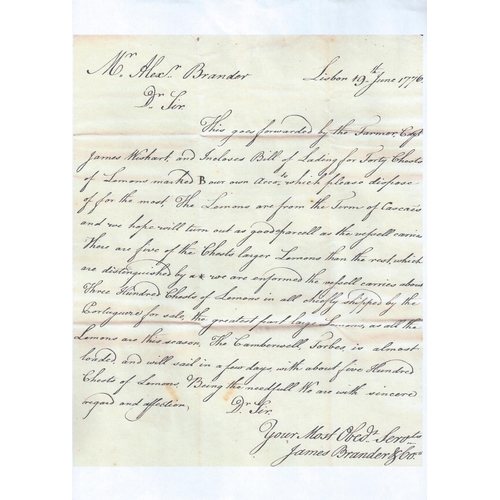 Mr. Alexr. Brander Lisbon 19th June 1776
Dr Sir
This goes forwarded by the Farmer, Capt
James Wishart, and Incloses Bill of Lading for Forty Chests
of Lemons marked B our own Accots, which please dispose
of for the most. The Lemons are from the Term of Cascaes
and we hope will turn out as good parcell as the vessell carries
There are five of the Chests larger Lemons than the rest, which
are distinguished by a * we are enformed the vessell carries about
Three Hundred Chests of Lemons in all chiefly shipped by the
Portuguese for sale, the greatest part large Lemons, as all the
Lemons are this season. The Camberwell, Forbes, is almost
loaded, and will sail in a few days, with about five Hundred
Chests of Lemons. Being the needfull We are with sincere
regard and affection,
Dr. Sir
Your Most Obedt. Servts
James Brander & Co.